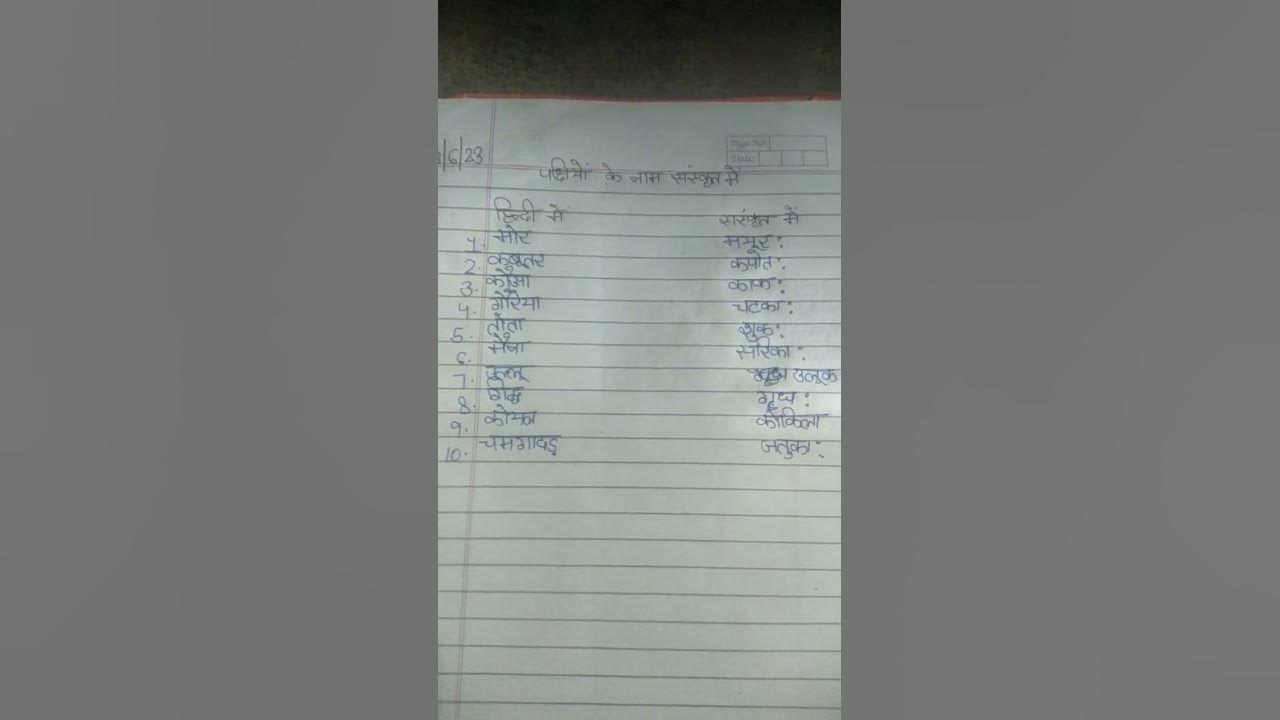 /6/23
Page No.
Date:
पक्षियों के नाम संस्कृत में
हिन्दी में सस्कृत में
1. मोर मयूर:
2. कबूतर कपोत:
3. कौआ काक:
4. गौरैया चटका:
5. तोता शुक:
6. मैना सारिका:
7. उल्लू उलूक
8. गिद्ध गृध्र:
9. कोयल कोकिला
10. चमगादड़ जतुका: